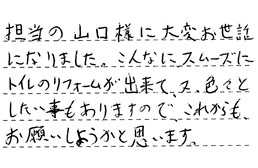 担当の山口様に大変お世話
になりました。こんなにスムーズに
トイレのリフォームが出来て、又、色々と
したい事もありますので、これからも、
お願いしようかと思います。